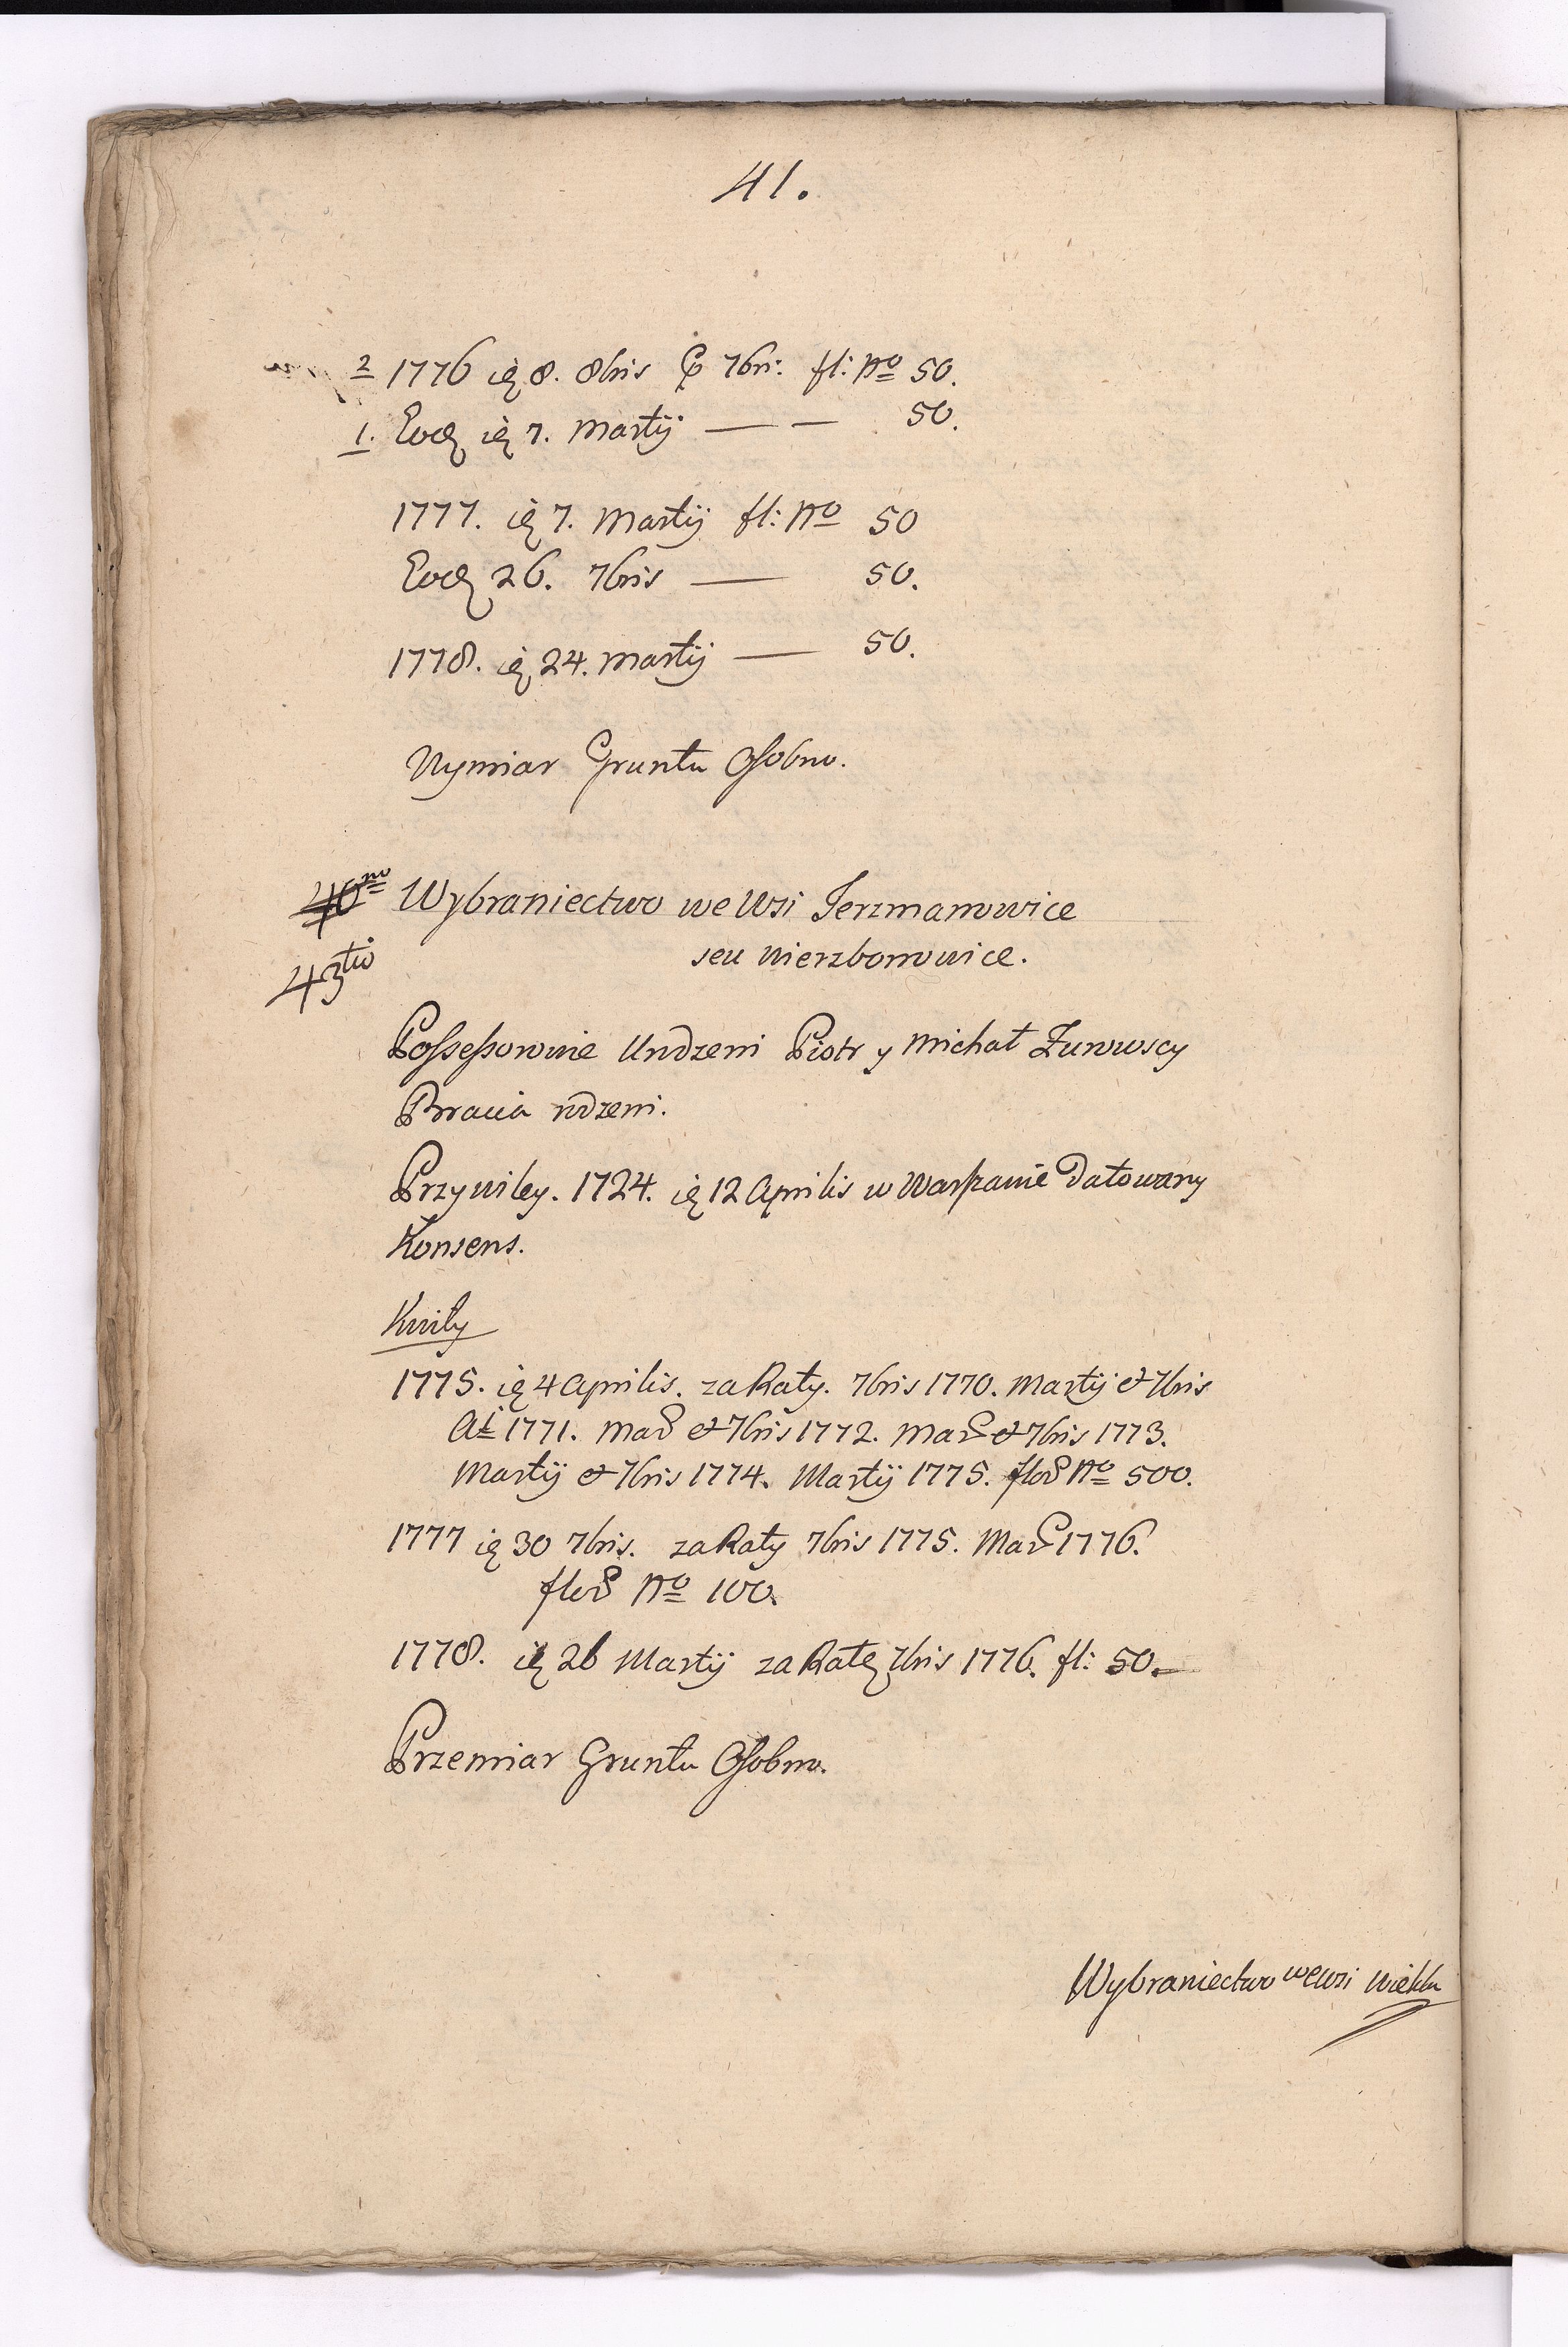 41.
2 1776 ię 8. 8bris Ꝑ 7bri: fl: No 50.
1. Eodę ię 7. Martij — — 50.
1777. ię 7. Martij fl: No 50
Eodę 26. 7bris — 50.
1778. ię 24. Martij — 50.
Wymiar Gruntu Osobno.
40mo Wybraniectwo we Wsi Jerzmanowice
43tio seu Wierzbonowice.
Possessorowie Urodzeni Piotr y Michał Zurowscy
Bracia rodzeni.
Przywiley. 1724. ię 12 Aprilis w Warszawie Datowany
Konsens.
Kwity
1775. ię 4 Aprilis. za Raty. 7bris 1770. Martij et 7bris
Ai 1771. Mar et 7bris 1772. Mar et 7bris 1773.
Martij et 7bris 1774. Martij 1775. flor No 500.
1777 ię 30 7bris. za Raty 7bris 1775. Mar 1776.
flor No 100.
1778. ię 26 Martij za Ratę 7bris 1776. fl: 50.
Przemiar Gruntu Osobno.
Wybraniectwo we Wsi